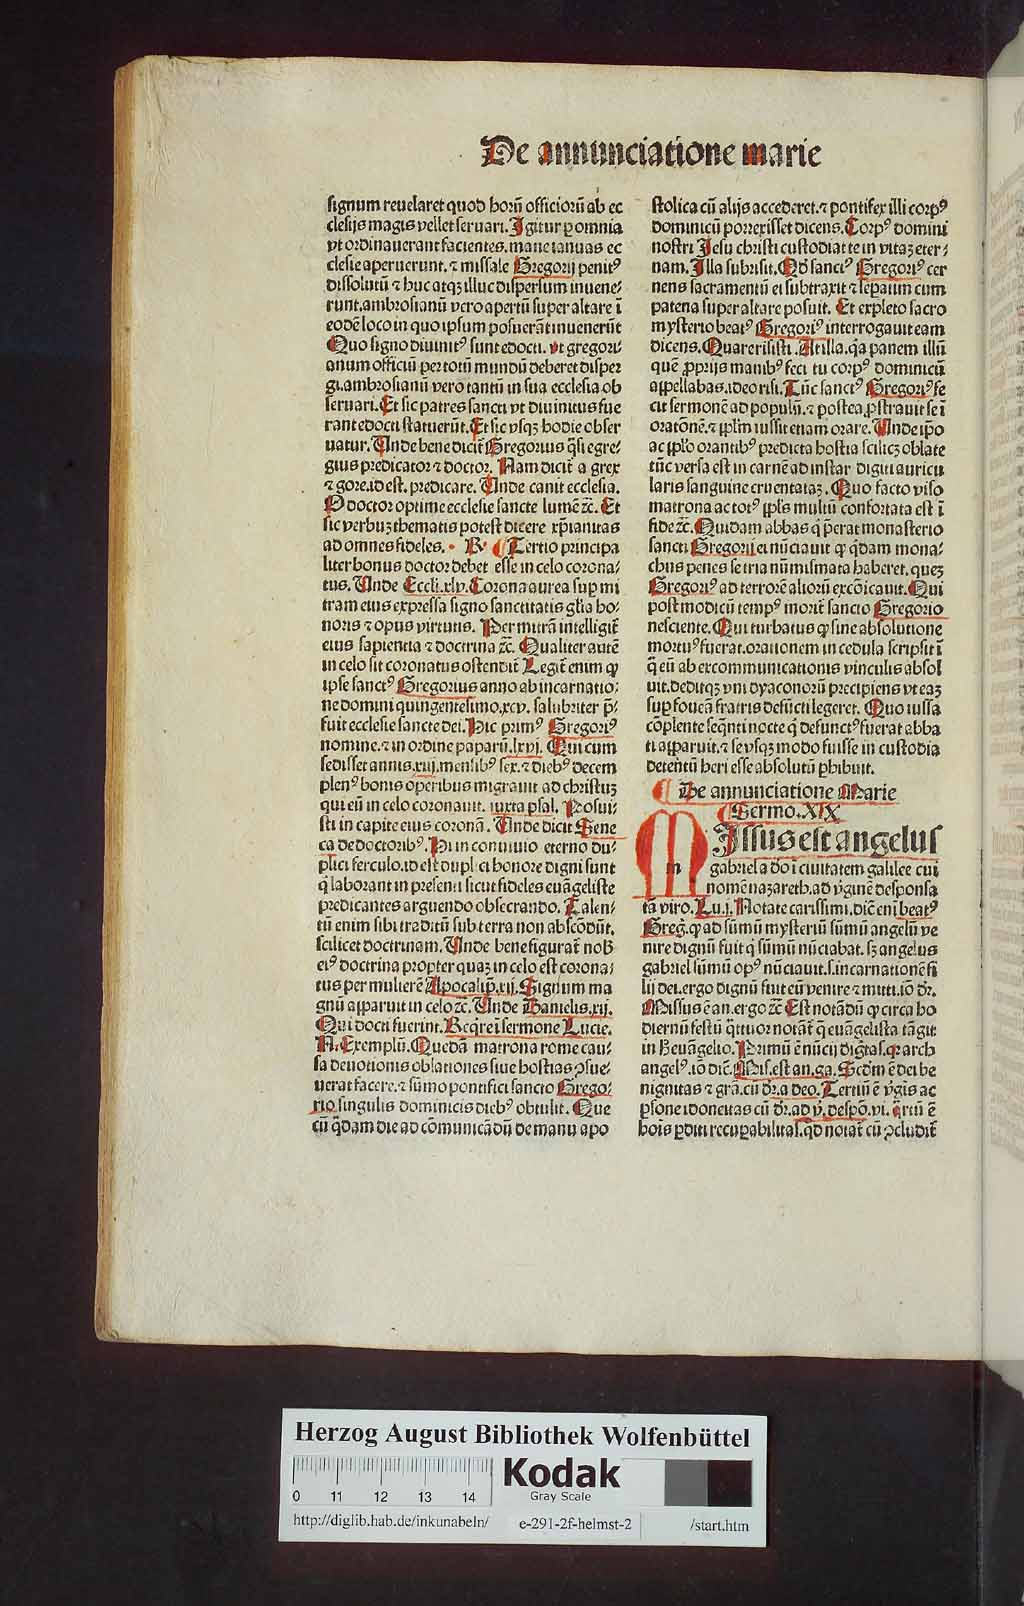 De annunciatione marie
signum reuelaret quod horū officiorū ab ec
clesijs magis vellet seruari. Igitur ꝑ omnia
vt ordinauerant facientes. mane ianuas ec
clesie aperuerunt. ⁊ missale Gregorij penitꝰ
dissolutū ⁊ huc atqꝫ illuc dispersum inuene⸗
runt. ambrosianū vero apertū super altare ī
eodē loco in quo ipsum posuerāt inuenerūt
Quo signo diuinitꝰ sunt edocti. vt gregori⸗
anum officiū per totū mundū deberet disper
gi. ambrosianū vero tantū in sua ecclesia ob
seruari. Et sic patres sancti vt diuinitus fue
rant edocti statuerūt. Et sic vsqꝫ hodie obser
uatur. Unde bene dicit̄ Gregorius q̄si egre⸗
gius predicator ⁊ doctor. Nam dicit̄ a grex
⁊ gore. id est. predicare. Unde canit ecclesia.
O doctor optime ecclesie sancte lumē ⁊c̄. Et
sic verbuꝫ thematis potest dicere xp̄ianitas
ad omnes fideles. R Tertio principa
liter bonus doctor debet esse in celo corona⸗
tus. Unde Eccli. xlv. Corona aurea sup mi
tram eius expressa signo sanctitatis gl̄ia ho⸗
noris ⁊ opus virtutis. Per mitrā intelligit̄
eius sapientia ⁊ doctrina ⁊c̄. Qualiter autē
in celo sit coronatus ostendit̄ Legit̄ enim ꝙ
ipse sanctꝰ Gregorius anno ab incarnatio⸗
ne domini quingentesimo. xcv. salubriter p̄⸗
fuit ecclesie sancte dei. Hic primꝰ Gregoriꝰ
nomine. ⁊ in ordine paparū. lxvj. Qui cum
sedisset annis. xiij. mensibꝰ sex. ⁊ diebꝰ decem
plenꝰ bonis operibus migrauit ad christuꝫ
qui eū in celo coronauit. iuxta psal. Posui⸗
sti in capite eius coronā. Unde dicit Sene
ca de doctoribꝰ. Hi in conuiuio eterno du⸗
plici ferculo. id est dupl ci honore digni sunt
q̄ laborant in presenti sicut fideles euāgeliste
predicantes arguendo obsecrando. Talen⸗
tū enim sibi traditū sub terra non abscōdūt.
scilicet doctrinam. Unde bene figurat̄ nob
eiꝰ doctrina propter quaꝫ in celo est corona⸗
tus per mulierē Apocalip̄. xij. Signum ma
gnū apparuit in celo ⁊c̄. Unde Danielis. xij.
Qui docti fuerint. Req̄re ī sermone Lucie.
A. Exemplū. Quedā matrona rome cau⸗
sa deuotionis oblationes siue hostias ꝯsue⸗
uerat facere. ⁊ sūmo pontifici sancto Grego⸗
rio singulis dominicis diebꝰ obtulit. Que
cū q̄dam die ad cōmunicādū de manu apo
stolica cū alijs accederet. ⁊ pontifex illi corpꝰ
dominicū porrexisset dicens. Corpꝰ domini
nostri Jesu christi custodiat te in vitaꝫ eter⸗
nam. Illa subrisit. Qd̄ sanctꝰ Gregoriꝰ cer
nens sacramentū ei subtraxit ⁊ seꝑatim cum
patena super altare posuit. Et expleto sacro
mysterio beatꝰ Gregoriꝰ interrogauit eam
dicens. Quare risisti. At illa. q̄a panem illū
quē ꝓprijs manibꝰ feci tu corpꝰ dominicū
appellabas. ideo risi. Tūc sanctꝰ Gregoriꝰ fe
cit sermonē ad populū. ⁊ postea ꝓstrauit se ī
orationē. ⁊ pplm̄ iussit etiam orare. Unde ip̄o
ac pplo orantibꝰ predicta hostia scilicꝫ oblate
tūc versa est in carnē ad instar digiti auricu
laris sanguine cruentataꝫ. Quo facto viso
matrona ac totꝰ ppl̄s multū confortata est ī
fide ⁊c̄. Quidam abbas q̄ p̄erat monasterio
sancti Gregorij ei nūciauit ꝙ q̄dam mona⸗
chus penes se tria nūmismata haberet. queꝫ
Gregoriꝰ ad terrorē aliorū excōicauit. Qui
post modicū tempꝰ morit̄ sancto Gregorio
nesciente. Qui turbatus ꝙ sine absolutione
mortuꝰ fuerat. orationem in cedula scripsit ī
q̄ eū ab excommunicationis vinculis absol
uit. deditqꝫ vni dyaconorū precipiens vt eaꝫ
suꝑ foueā fratris defūcti legeret. Quo iussa
cōplente seq̄nti nocte q̄ defunctꝰ fuerat abba
ti apparuit. ⁊ se vsqꝫ modo fuisse in custodia
detentū heri esse absolutū ꝑhibuit.
De annunciatione Marie
Sermo. XIX
MIssus est angelus
m
gabriel a deo ī ciuitatem galilee cui
nomē nazareth. ad v̄ginē desponsa
tā viro. Lu. j. Notate carissimi. dic̄ em̄ beatꝰ
Greg. ꝙ ad sūmū mysteriū sūmū angelū ve
nire dignū fuit q̄ sūmū nūciabat. sꝫ angelus
gabriel sūmū opꝰ nūciauit. s. incarnationē fi
lij dei. ergo dignū fuit eū venire ⁊ mitti. iō dr̄.
Missus ē an. ergo ⁊c̄ Est notādū ꝙ circa ho
diernū festū q̄ttuor notāt̄ q̄ euāgelista tāgit
in h̄ euāgelio. Primū ē nūcij dignitas. qꝛ arch
angelꝰ. iō dic̄. Mis. est an. ga. Scd̄m ē dei be
nignitas ⁊ gr̄a. cū dr̄. a deo. Tertiū ē v̄gīs ac
ꝑsone idoneitas cū dr̄. ad v̄. despō. vi. q̄rtū ē
hoīs ꝑditi recuꝑabilitas. qd̄ notat̄ cū ꝯcludit̄
Herzog August Bibliothek Wolfenbüttel
0 11 12 13 14
Kodak
Gray Scale
http://diglib.hab.de/inkunabeln/ e-291-2f-helmst-2 /start.htm